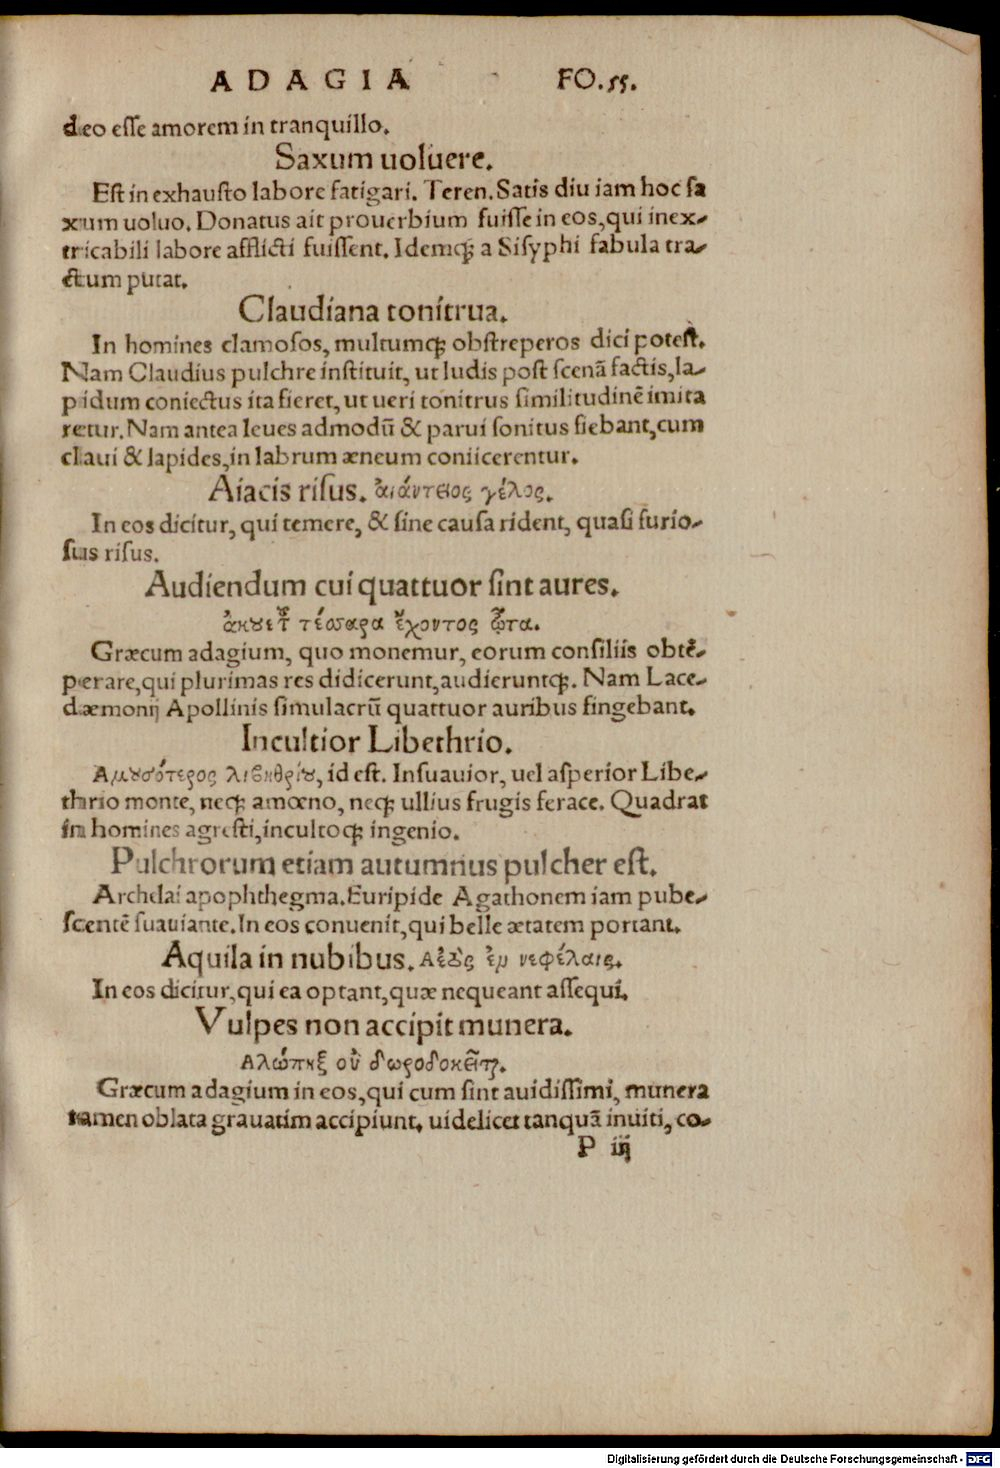 ADAGIA FO.55.
deo esse amorem in tranquillo.
Saxum uoluere.
Est in exhausto labore fatigari. Teren. Satis diu iam hoc sa
xum uoluo. Donatus ait prouerbium fuisse in eos, qui inex-
tricabili labore afflicti fuissent. Idemq; a Sisyphi fabula tra-
ctum putat.
Claudiana tonitrua.
In homines clamosos, multumq; obstreperos dici potest.
Nam Claudius pulchre instituit, ut ludis post scenã factis, la-
pidum coniectus ita fieret, ut ueri tonitrus similitudinẽ imita
retur. Nam antea leues admodũ & parui sonitus fiebant, cum
claui & lapides, in labrum æneum coniicerentur.
Aiacis risus. ἀιάντειος γέλος.
In eos dicitur, qui temere, & sine causa rident, quasi furio-
sus risus.
Audiendum cui quattuor sint aures.
ἀκούει τοῦ τέσσαρα ἔχοντος ὦτα.
Græcum adagium, quo monemur, eorum consiliis obtẽ-
perare, qui plurimas res didicerunt, audieruntq;. Nam Lace-
dæmonij Apollinis simulacrũ quattuor auribus fingebant.
Incultior Libethrio.
Αμουσότερος λιβηθρίου, id est. Insuauior, uel asperior Libe-
thrio monte, neq; amœno, neq; ullius frugis ferace. Quadrat
in homines agresti, incultoq; ingenio.
Pulchrorum etiam autumnus pulcher est.
Archelai apophthegma. Euripide Agathonem iam pube-
scentẽ suauiante. In eos conuenit, qui belle ætatem portant.
Aquila in nubibus. Αἐτὸς ἐν νεφέλαις.
In eos dicitur, qui ea optant, quæ nequeant assequi.
Vulpes non accipit munera.
Αλώπηξ οὐ δωροδοκεῖται.
Græcum adagium in eos, qui cum sint auidissimi, munera
tamen oblata grauatim accipiunt, uidelicet tanquã inuiti, co-
P iij
Digitalisierung gefördert durch die Deutsche Forschungsgemeinschaft - DFG